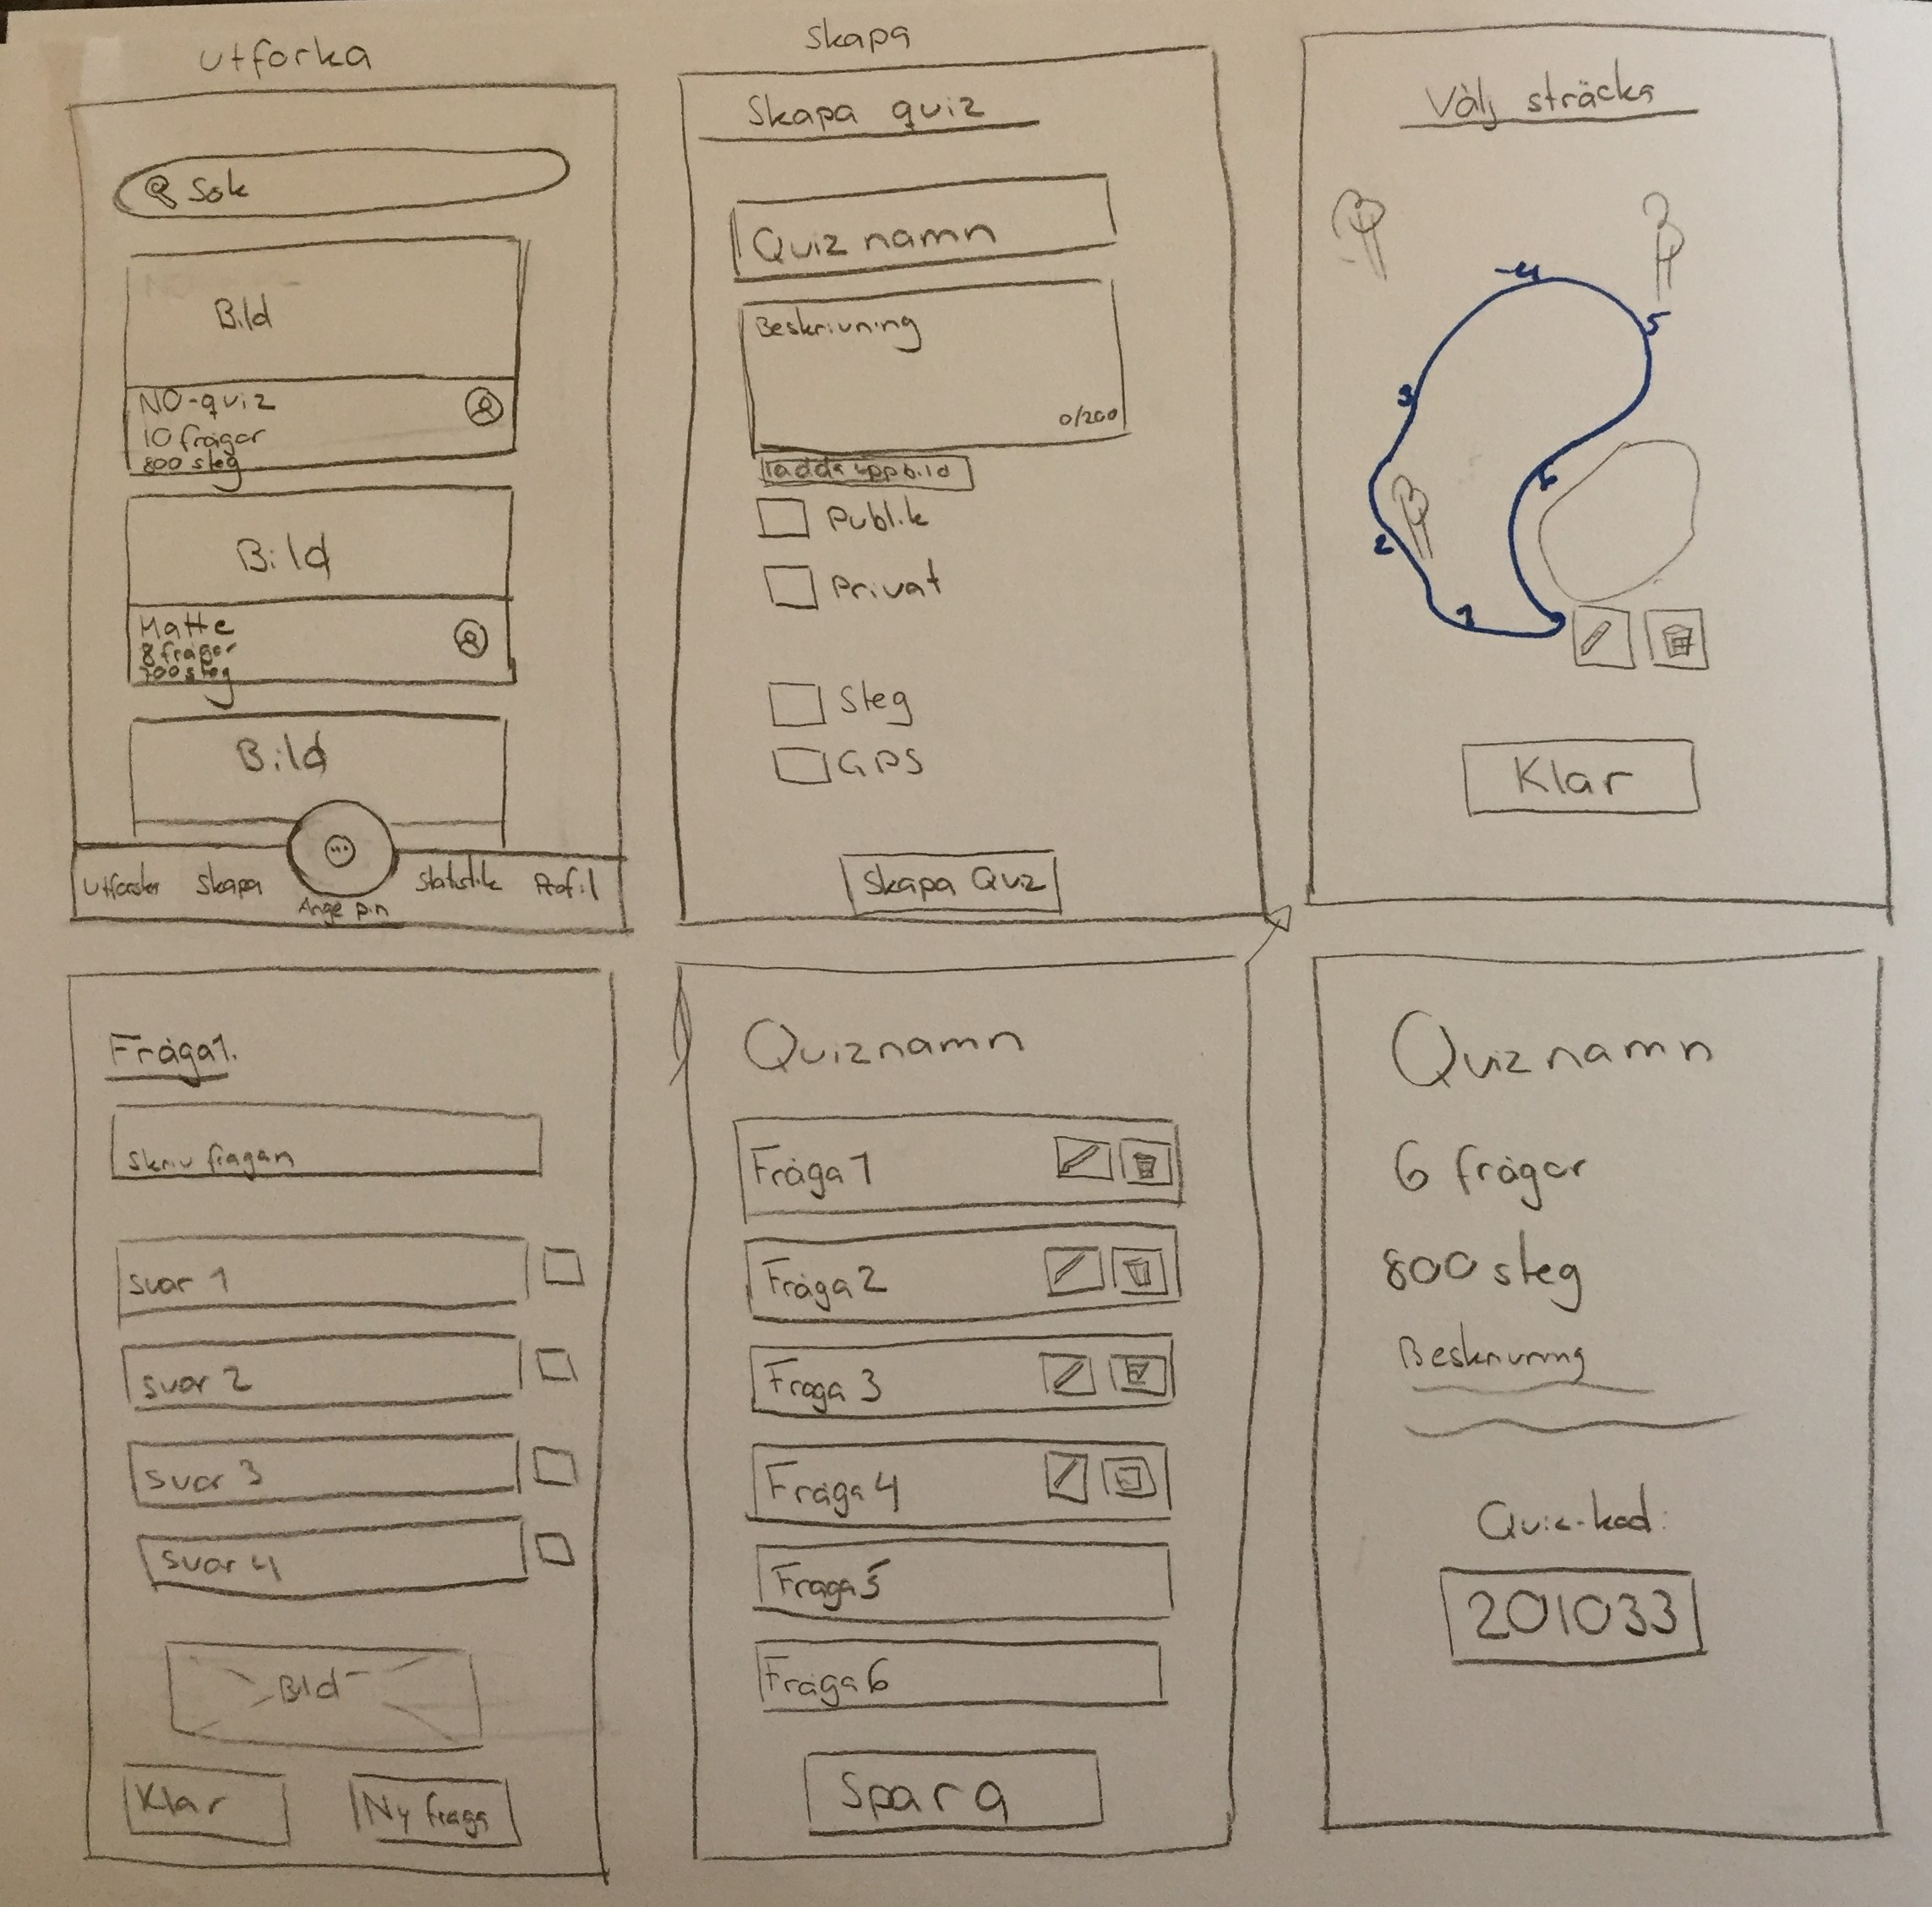 utforka
Sök
Bild
NO-quiz
10 frågor
800 steg
Bild
Matte
8 frågor
700 steg
Bild
Utforska
Skapa
Ange pin
Statistik
Profil
Skapa
Skapa quiz
Quiz namn
Beskrivning
0/200
ladda upp bild
Publik
Privat
Steg
GPS
Skapa Quiz
Välj sträcka
4
5
3
6
2
1
Klar
Fråga 1.
Skriv frågan
Svar 1
Svar 2
Svar 3
Svar 4
Bild
Klar
Ny fråga
Quiznamn
Fråga 1
Fråga 2
Fråga 3
Fråga 4
Fråga 5
Fråga 6
Spara
Quiz namn
6 frågor
800 steg
Beskrivning
Quiz-kod:
201033